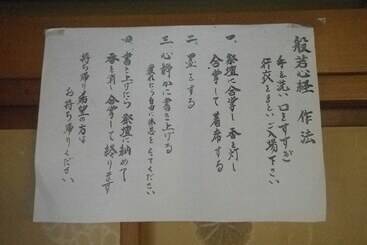 般若心経 作法
手を洗い口をすすぎ
行衣をまといご入場下さい
一、祭壇に合掌し香を灯し
合掌して着席する
二、墨をする
三、心静かに書き上げる
疲れたら自由に休息をとってください
書き上げたら祭壇に納めて
香を消し合掌して終ります
持ち帰り希望の方は
お持ち帰りください